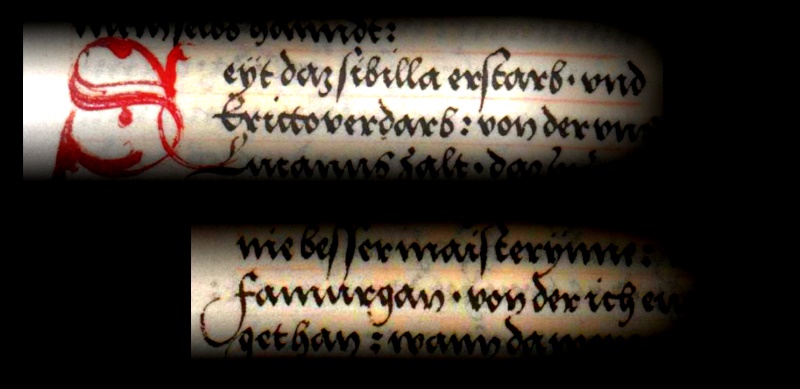 Seyt daz sibilla erstarb · vnd
Ericto verdarb : von der vns
Lucanus zalt · daz
nie besser maisterynne :
famurgan · von der ich eu
gethan : wann da